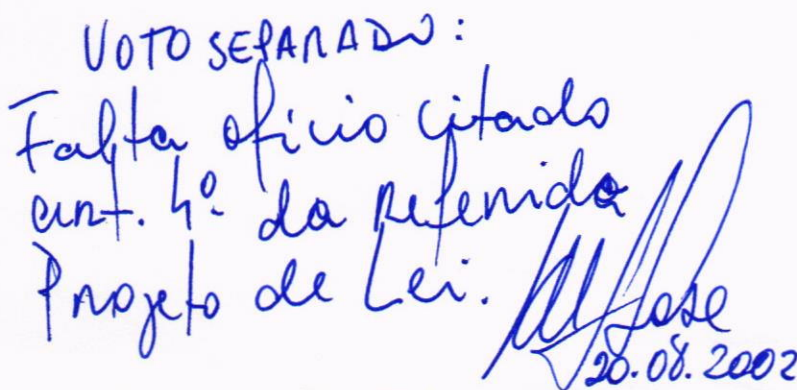 VOTO SEPARADO:
Falta ofício citado
art. 4º da referida
Projeto de Lei.
20.08.2002